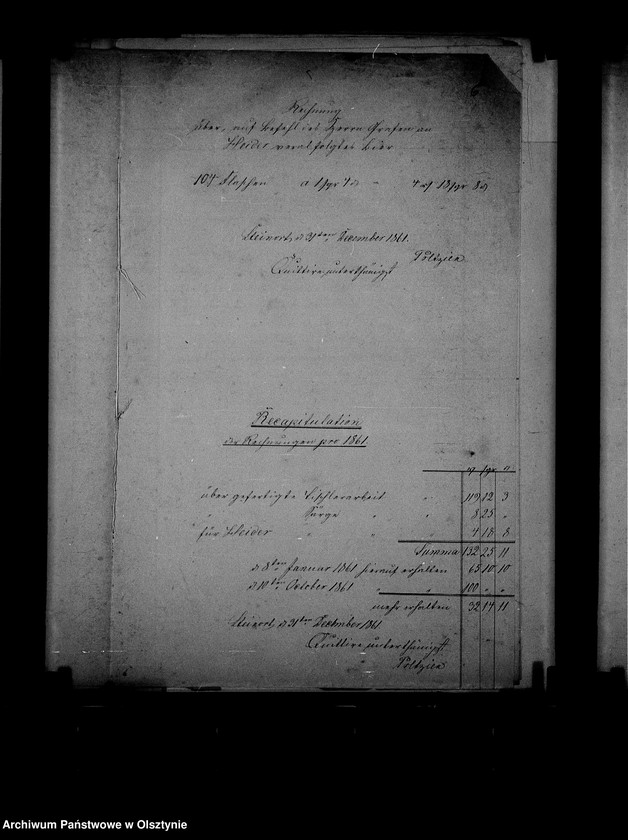 Rechnung
über, auf Befehl des Herrn Grafen an
Heider verabfolgtes Bier
104 Flaschen a 1 sgr 4 d - 4 rl 18 sgr 8 d
Steinort, d 31ten December 1861.
Quittire unterthänigst
Recapitulation
der Rechnungen pro 1861
über gefertigte Tischlerarbeit " 119 12 3
" Särge " " 8 25 "
für Heider " " 4 18 8
Summa 132 25 11
d 8ten Januar 1861 hierauf erhalten 65 10 10
d 10ten October 1861. " " 100 " "
mehr erhalten 32 14 11
Steinort, d 31ten December 1861
Quittire unterthänigst
Archiwum Państwowe w Olsztynie